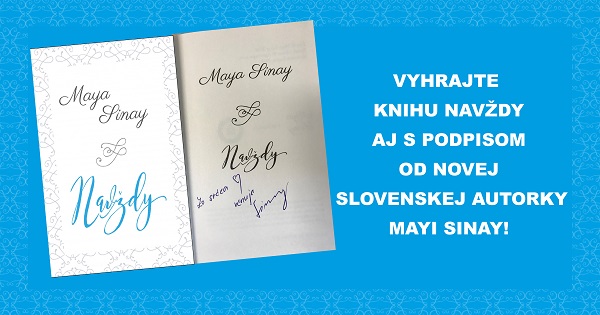 Maya
Sinay
Navždy
Maya Sinay
Navždy
Zo srdca
venuje
VYHRAJTE
KNIHU NAVŽDY
AJ S PODPISOM
OD NOVEJ
SLOVENSKEJ AUTORKY
MAYI SINAY!